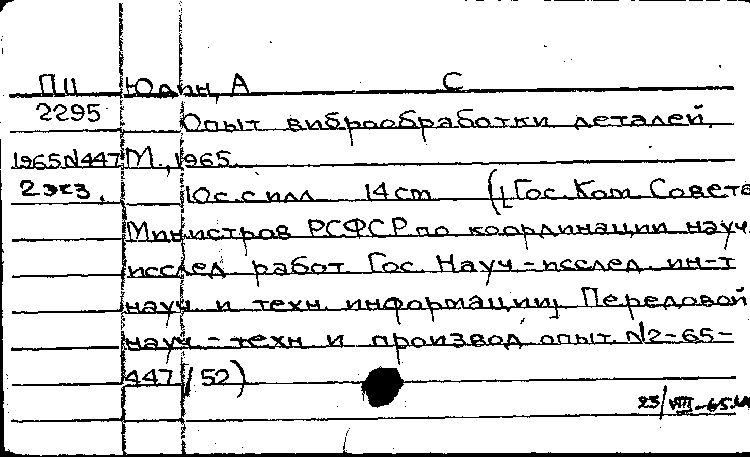 П11 Юдин, А С
2295 Опыт виброобработки деталей.
1965N447 М., 1965
2 экз. 10с. с илл 14cm ([Гос. Ком Совета
Министров РСФСР по координации науч.
исслед работ Гос. Науч-исслед. ин-т
науч и техн информации] Передовой
науч-техн и производ опыт. N2-65-
447/52)
23/VIII-65